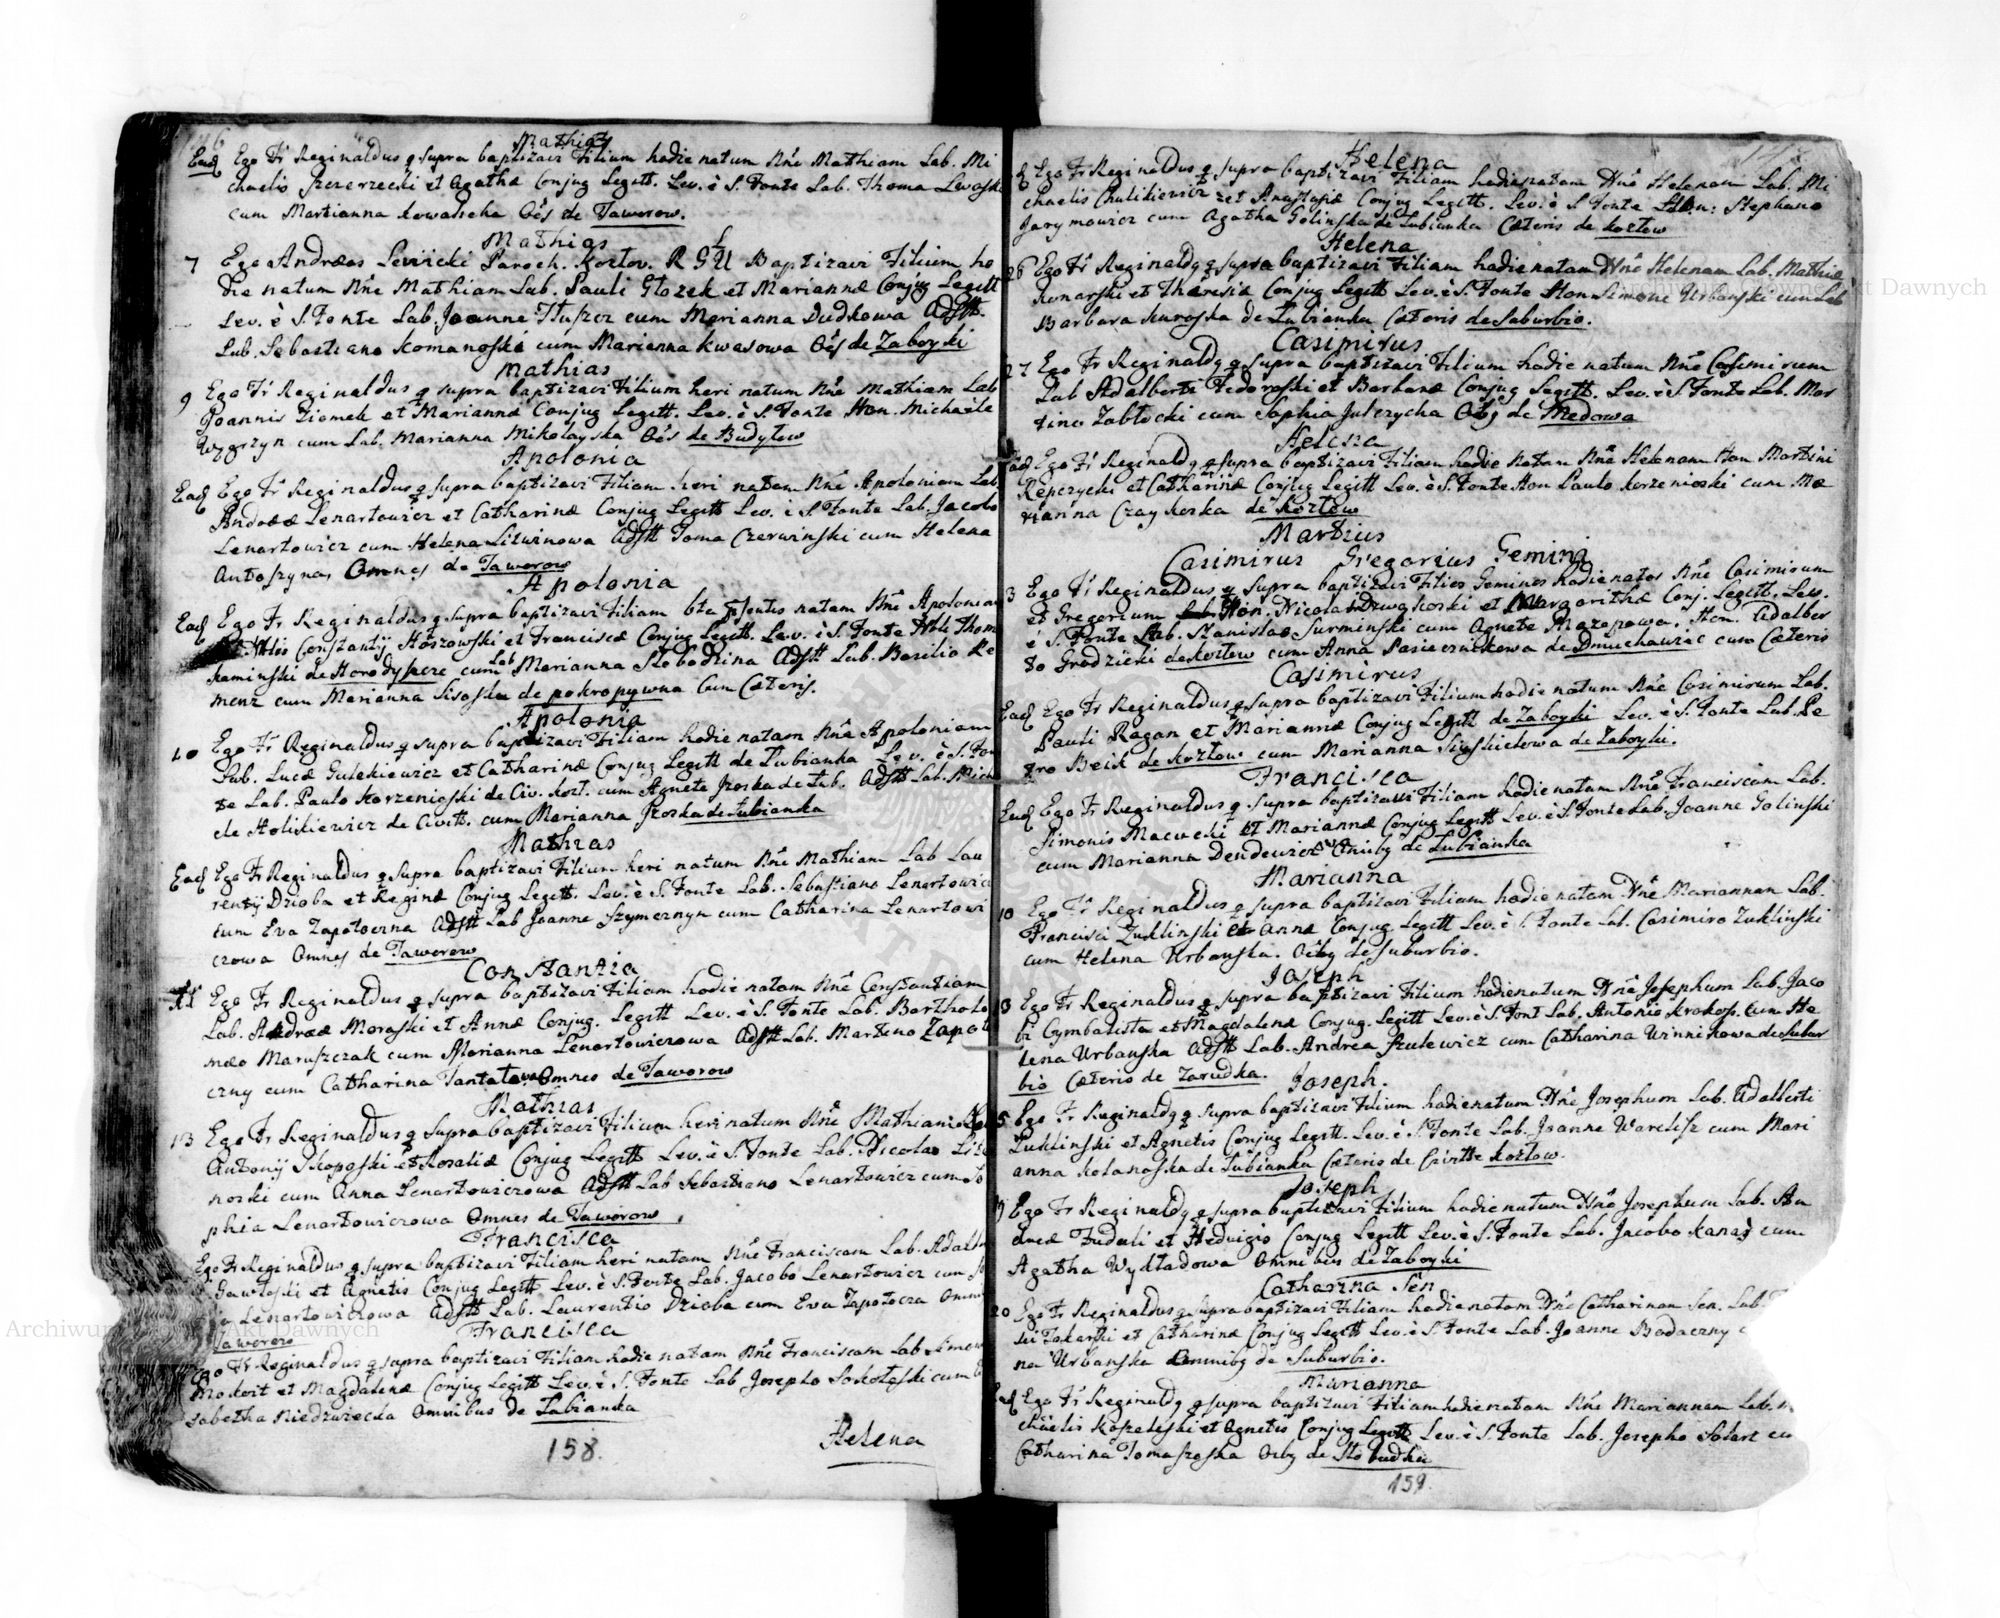 Mathias
Ead Ego Fr Reginaldus q supra baptizavi Filium hodie natum Nne Mathiam Lab. Mi
chaelis et Agathæ Conjug Legitt. Lev. è S. Fonte Lab. Thoma
cum Martianna Oes de Taworow.
Mathias
7 Ego Andreas Levicki Paroch. Kozlov. R G U Baptizavi Filium ho
die natum Nne Mathiam Lab. Pauli Glozek et Mariannæ Conjug Legitt
Lev. è S. Fonte Lab. Joanne Tluszcz cum Marianna Dudkowa Adstt.
Lab. Sebastiano Romanoski cum Marianna Kwasowa Oes de Zaboyki
Mathias
9 Ego Fr Reginaldus q supra baptizavi Filium heri natum Nne Mathiam Lab
Joannis Ziomek et Mariannæ Conjug Legitt. Lev. è S. Fonte Hon. Michaele
Węgrzyn cum Lab. Marianna Mikolayska Oes de Budyłow
Apolonia
Ead Ego Fr Reginaldus q supra baptizavi Filiam heri natam Nne Apoloniam Lab.
Andreæ Lenartowicz et Catharinæ Conjug Legitt Lev. è S. Fonte Lab. Jacobo
Lenartowicz cum Helena Litwinowa Adstt Toma Czerwinski cum Helena
Antoszyna, Omnes de Taworow
Apolonia
Ead Ego Fr. Reginaldus q supra baptizavi Filiam natam Nne Apoloniam
Constantij Horzowski et Franciscæ Conjug Legitt. Lev. è S. Fonte Thom
Kaminski de Horodyszcze cum Lab Marianna Słobodzina Adstt Lab. Basilio Re
menz cum Marianna Sisoska de pokropywna Cum Cæteris.
Apolonia
10 Ego Fr Reginaldus q supra baptizavi Filiam hodie natam Nne Apoloniam
Lab. Lucæ Gulekiewicz et Catharinæ Conjug Legitt de Łubianka Lev. è S. Fon
te Lab. Paulo Korzenioski de Civ. Kozł. cum Agnete de Łub. Adstt Lab. Mich
ele Holikiewicz de Civitt. cum Marianna de Łubianka
Mathias
Ead Ego Fr Reginaldus q supra baptizavi Filium heri natum Nne Mathiam Lab Lau
rentij Dzioba et Reginæ Conjug Legitt. Lev. è S. Fonte Lab. Sebastiano Lenartowicz
cum Eva Zapotoczna Adstt Lab Joanne Szymczyn cum Catharina Lenartowi
czowa Omnes de Taworow
Constantia
11 Ego Fr Reginaldus q supra baptizavi Filiam hodie natam Nne Constantiam
Lab. Andreæ Moraski et Annæ Conjug. Legitt Lev. è S. Fonte Lab. Bartholo
mæo Maruszczak cum Marianna Lenartowiczowa Adstt Lab. Martino Zapot
czny cum Catharina Omnes de Taworow
Mathias
13 Ego Fr Reginaldus q supra baptizavi Filium heri natum Nne Mathiam
Antonij et Rosaliæ Conjug Legitt Lev. è S. Fonte Lab. Nicolao
noski cum Anna Lenartowiczowa Adstt Lab Sebastiano Lenartowicz cum So
phia Lenartowiczowa Omnes de Taworow
Francisca
Ego Fr Reginaldus q supra baptizavi Filiam heri natam Nne Franciscam Lab. Adalb
Gawłoski et Agnetis Conjug Legitt Lev. è S. Fonte Lab. Jacobo Lenartowicz cum
Lenartowiczowa Adstt Lab. Laurentio Dzioba cum Eva Zapotocza Omn
Taworow
Francisca
Ego Fr Reginaldus q supra baptizavi Filiam hodie natam Nne Franciscam Lab Simon
Mokrit et Magdalenæ Conjug Legitt Lev. è S. Fonte Lab Josepho Sokołoski cum
sabetha Niedzwiecka Omnibus de Łubianka
158.
Helena
Helena
Ego Fr Reginaldus q supra baptizavi Filiam hodie natam Nne Helenam Lab. Mi
chaelis Chulikiewicz et Anastasiæ Conjug Legitt. Lev. è S. Fonte Hon: Stephano
Jarymowicz cum Agatha Golinska de Łubianka Cæteris de Kozłow
Helena
26 Ego Fr Reginaldq q supra baptizavi Filiam hodie natam Nne Helenam Lab. Mathiæ
Konarski et Theresiæ Conjug Legitt Lev. è S. Fonte Hon Simone Urbanski cum Lab
Barbara Kuroska de Łubianka Cæteris de Suburbio.
Casimirus
27 Ego Fr Reginaldq q supra baptizavi Filium hodie natum Nne Casimirum
Lab Adalberti Fedoroski et Barbaræ Conjug Legitt. Lev. è S. Fonte Lab. Mar
tino Zabłocki cum Sophia Julczycha Oibq de Medowa
Helena
Ead Ego Fr Reginaldq q supra baptizavi Filiam hodie natam Nne Helenam Hon Martini
Repczycki et Catharinæ Conjug Legitt Lev. è S. Fonte Hon Paulo Korzenioski cum Ma
rianna Czaykoska de Kozłow
Martius
Casimirus Gregorius Gemini
3 Ego Fr Reginaldus q supra baptizavi Filios Geminos hodie natos Nne Casimirum
et Gregorium Hon. Nicolai et Margarithæ Conj. Legitt. Lev.
è S. Fonte Lab. Stanislao Surminski cum Agnete Mazepowa. Hon. Adalber
to Grodzicki de Kozłow cum Anna Pasiecznikowa de Dmuchawiec cum Cæteris
Casimirus
Ead Ego Fr Reginaldus q supra baptizavi Filium hodie natum Nne Casimirum Lab.
Pauli Ragan et Mariannæ Conjug Legitt de Zaboyki Lev. è S. Fonte Lab. Pe
tro Beik de Kozłow cum Marianna de Zaboyki.
Francisca
Ead Ego Fr Reginaldus q supra baptizavi Filiam hodie natam Nne Franciscam Lab.
Simonis Macucki et Mariannæ Conjug Legitt Lev. è S. Fonte Lab. Joanne Golinski
cum Marianna Omnibq de Łubianka
Marianna
10 Ego Fr Reginaldus q supra baptizavi Filiam hodie natam Nne Mariannam Lab.
Francisci Zuklinski et Annæ Conjug. Legitt Lev. è S. Fonte Lab. Casimiro Zuklinski
cum Helena Urbanska. Oibq de Suburbio.
Joseph
Ego Fr Reginaldus q supra baptizavi Filium hodie natum Nne Josephum Lab. Jaco
bi Cymbalista et Magdalenæ Conjug. Legitt Lev. è S. Font Lab. Antonio Krokos. cum He
lena Urbanska Adstt Lab. Andrea Szulewicz cum Catharina Winnikowa de Subur
bio Cæteris de Zarudka.
Joseph.
Ego Fr Reginaldq q supra baptizavi Filium hodie natum Nne Josephum Lab. Adalberti
Zuklinski et Agnetis Conjug Legitt. Lev. è S. Fonte Lab. Joanne Warelisz cum Mari
anna Kolanoska de Łubianka Cæteris de Civitte Kozłow.
Joseph
Ego Fr Reginaldq q supra baptizavi Filium hodie natum Nne Josephum Lab. An
dreæ Fudali et Hedvigis Conjug Legitt Lev. è S. Fonte Lab. Jacobo Kanas cum
Agatha Wydładowa Omnibus de Zaboyki
Catharina Sen
20 Ego Fr Reginaldus q supra baptizavi Filiam hodie natam Nne Catharinam Sen. Lab.
Tokarski et Catharinæ Conjug Legitt Lev. è S. Fonte Lab. Joanne Badaczny
na Urbanska Omnibq de Suburbio.
Marianna
Ead Ego Fr Reginaldq q supra baptizavi Filiam hodie natam Nne Mariannam Lab.
chaelis et Agnetis Conjug Legitt Lev. è S. Fonte Lab. Josepho Solarz cu
Catharina Tomaszoska Oibq de Słobudka
159.
Archiwum Główne Akt Dawnych
Archiwum Główne Akt Dawnych